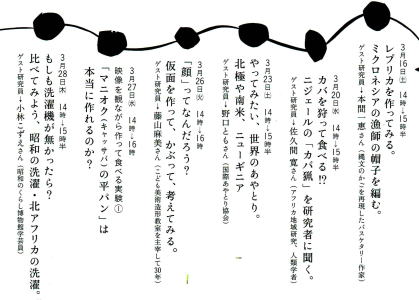 3月16日㊏ 14時→15時半
レプリカを作ってみる。
ミクロネシアの漁師の帽子を編む。
ゲスト研究員→本間一恵さん（縄文のかごを再現したバスケタリー作家）
3月20日㊌ 14時→15時半
カバを狩って食べる!?
ニジェールの「カバ猟」を研究者に聞く。
ゲスト研究員→佐久間寛さん（アフリカ地域研究、人類学者）
3月23日㊏ 14時→15時半
やってみたい、世界のあやとり。
北極や南米、ニューギニア
ゲスト研究員→野口ともさん（国際あやとり協会）
3月26日㊋ 14時→16時
「顔」ってなんだろう？
仮面を作って、かぶって、考えてみる。
ゲスト研究員→藤山麻美さん（こども美術造形教室を主宰して30年）
3月27日㊌ 14時→16時
映像を観ながら作って食べる実験①
「マニオク（キャッサバ）の平パン」は
本当に作れるのか？
3月28日㊍ 14時→15時半
もしも洗濯機が無かったら？
比べてみよう、昭和の洗濯・北アフリカの洗濯。
ゲスト研究員→小林こずえさん（昭和のくらし博物館学芸員）